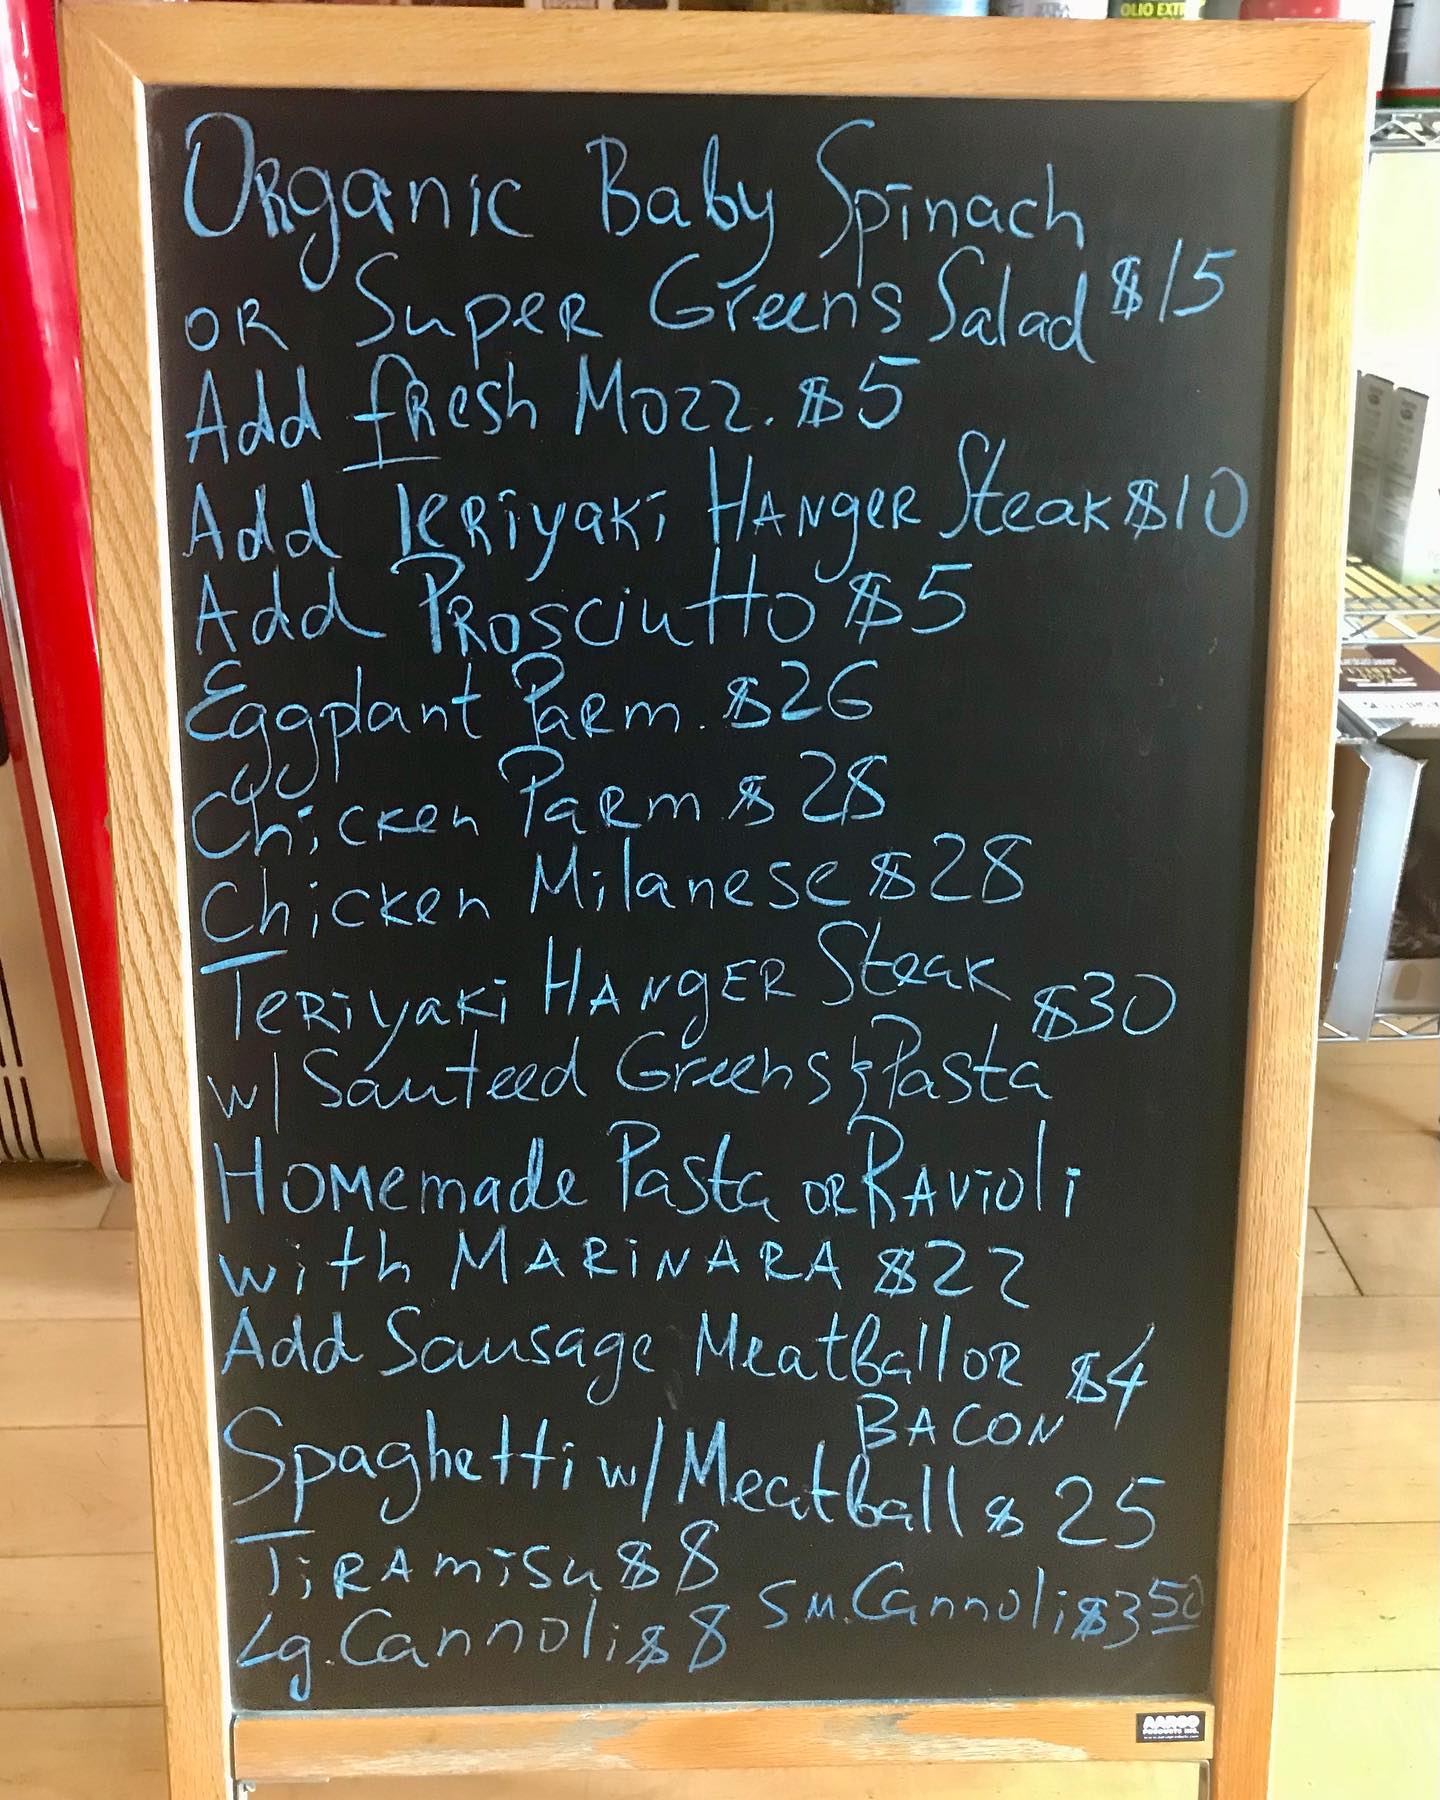 OLIO EXT
Organic Baby Spinach
or Super Greens Salad $15
Add fresh Mozz. $5
Add Teriyaki Hanger Steak $10
Add Prosciutto $5
Eggplant Parm. $26
Chicken Parm $28
Chicken Milanese $28
Teriyaki HANGER Steak $30
w/ Sauteed Greens & Pasta
Homemade Pasta or Ravioli
with MARINARA $22
Add Sausage Meatball or $4
BACON
Spaghetti w/ Meatball $25
Tiramisu $8
Sm. Cannoli $3 50
Lg. Cannoli $8
AARCO
PRODUCTS INC.